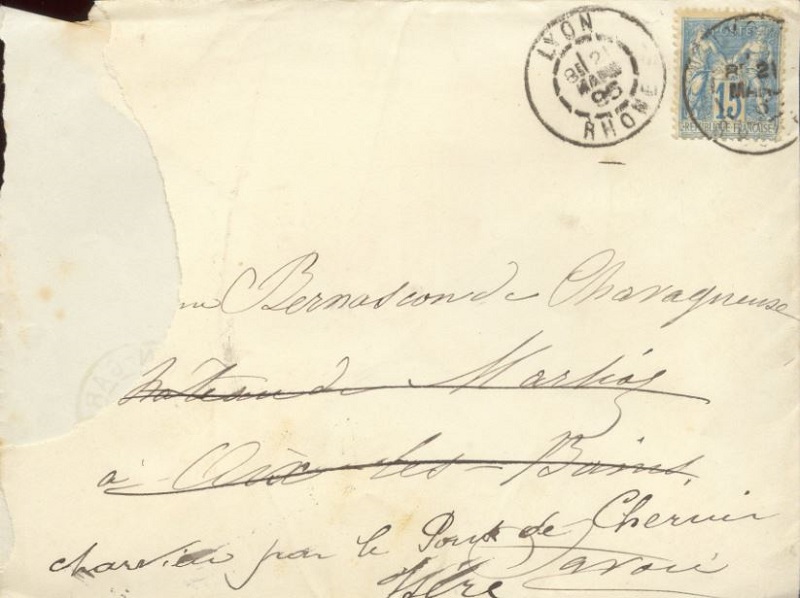 LYON
8E 21
MARS
95
RHONE
8E 21
MARS
15
REPUBLIQUE FRANCAISE
me Bernascon de Chavagneuse
château de Marlioz
à Aix-les-Bains
charvieu par le Pont de Cheruis
Savoie
Isère